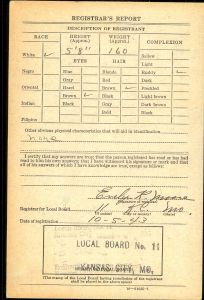 REGISTRAR'S REPORT
DESCRIPTION OF REGISTRANT
RACE HEIGHT (Approx.) WEIGHT (Approx.) COMPLEXION
White ✓ 5'8" 160 Sallow
EYES HAIR Light
Negro Blue Blonde Ruddy ✓
Gray Red Dark
Oriental Hazel Brown ✓ Freckled
Brown ✓ Black Light Brown
Indian Black Gray Dark Brown
Bald Black
Filipino
Other obvious physical characteristics that will aid in identification
none
I certify that my answers are true; that the person registered has read or has had
read to him his own answers; that I have witnessed his signature or mark and that
all of his answers of which I have knowledge are true, except as follows:
Registrar for Local Board 11 K.C. Mo.
Date of registration 10-5-43
LOCAL BOARD No. 11
KANSAS CITY, MO.
(The stamp of the Local Board having jurisdiction of the registrant
shall be placed in the above space)